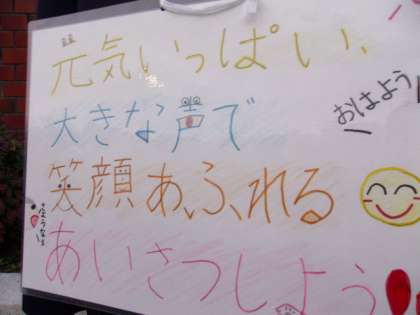 元気いっぱい、
大きな声で
おはよう
笑顔あふれる
あいさつしよう!